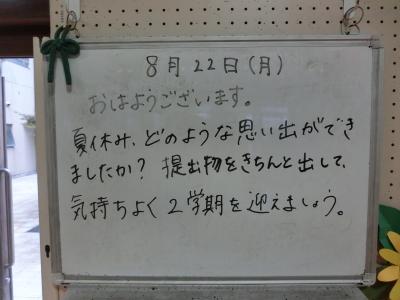 8月22日(月)
おはようございます。
夏休み、どのような思い出ができ
ましたか? 提出物をきちんと出して、
気持ちよく2学期を迎えましょう。